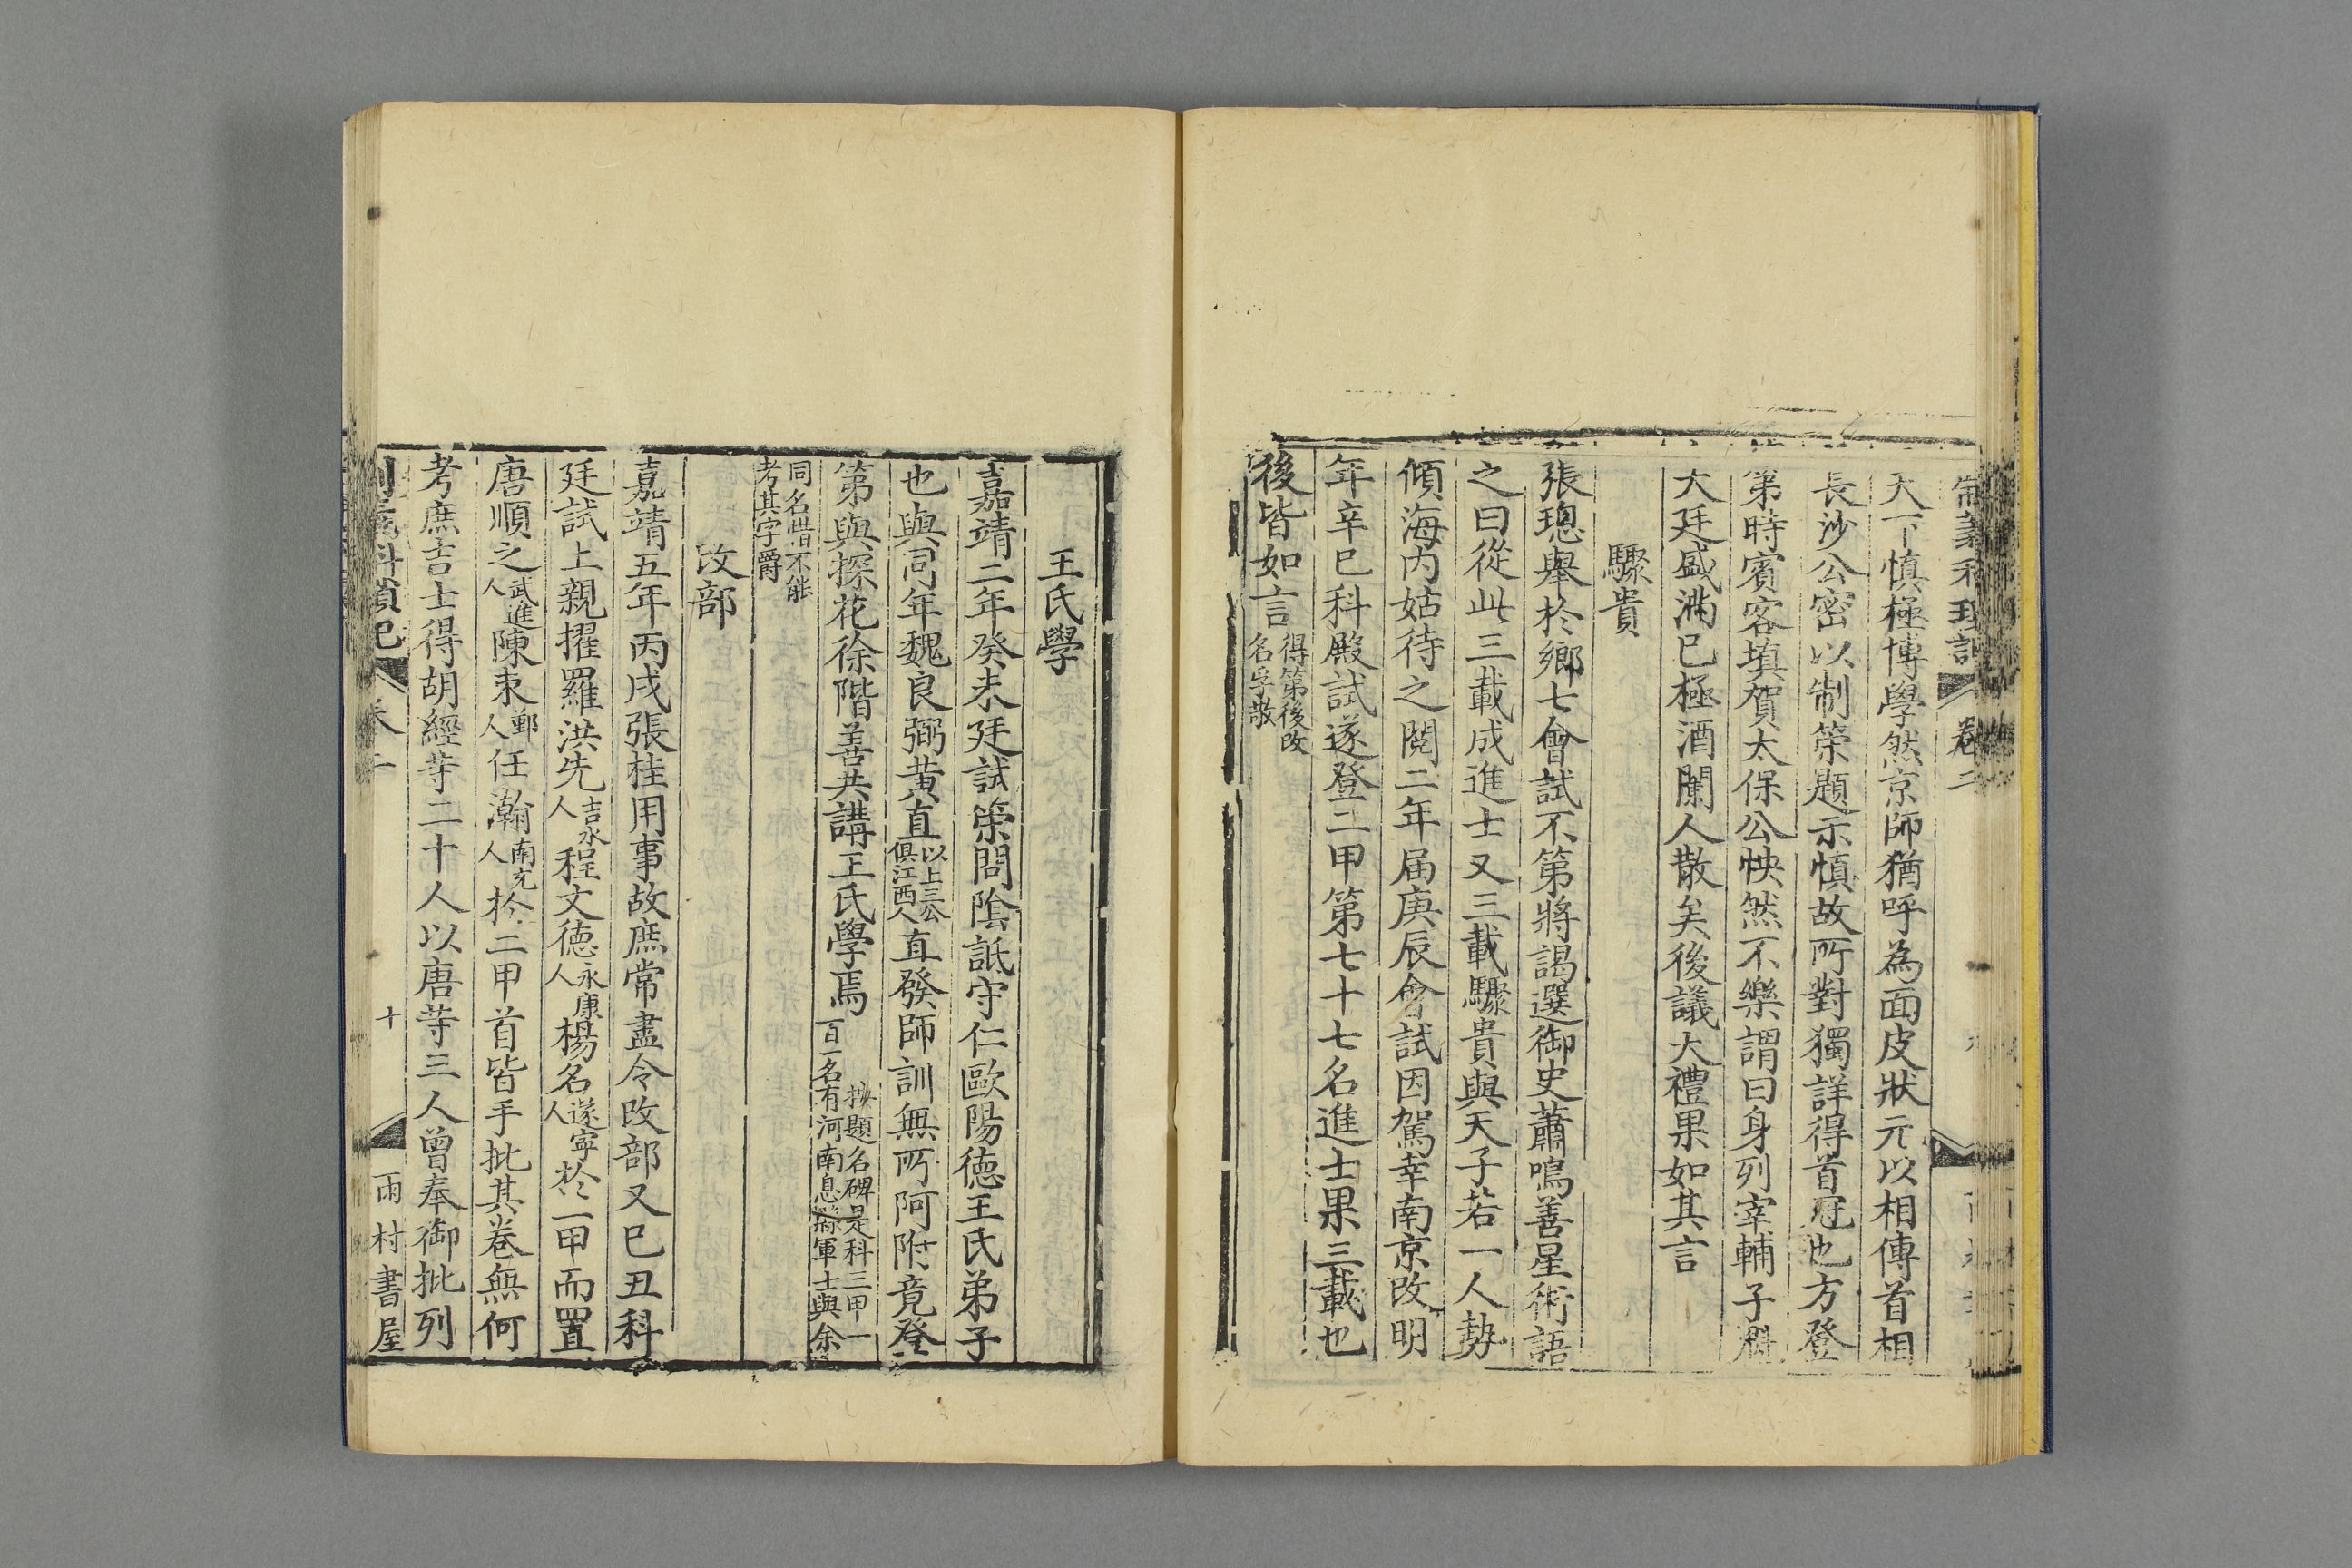 制義科瑣記 卷二
天下慎極博學然京師猶呼為面皮狀元以相傳首相
長沙公密以制策題示慎故所對獨詳得首冠也方登
第時賓客填賀太保公怏然不樂謂曰身列宰輔子
大廷盛滿已極酒闌人散矣後議大禮果如其言
驟貴
張璁舉於鄉七會試不第將謁選御史蕭鳴善星術語
之曰從此三載成進士又三載驟貴與天子若一人勢
傾海內姑待之閱二年届庚辰會試因駕幸南京改明
年辛巳科殿試遂登二甲第七十七名進士果三載也
後皆如言得第後改名孚敬
王氏學
嘉靖二年癸未廷試策問陰詆守仁歐陽德王氏弟子
也與同年魏良弼黃直以上三公俱江西人直發師訓無所阿附竟登
第與探花徐階善共講王氏學焉按題名碑是科三甲一百一名有河南息縣軍士與余
同名惜不能考其字爵
改部
嘉靖五年丙戌張桂用事故庶常盡令改部又巳丑科
廷試上親擢羅洪先吉水人程文德永康人楊名遂寧人於一甲而置
唐順之武進人陳束鄞人任瀚南充人於二甲首皆手批其卷無何
考庶吉士得胡經等二十人以唐等三人曾奉御批列
制義科瑣記 卷二 十 雨村書屋